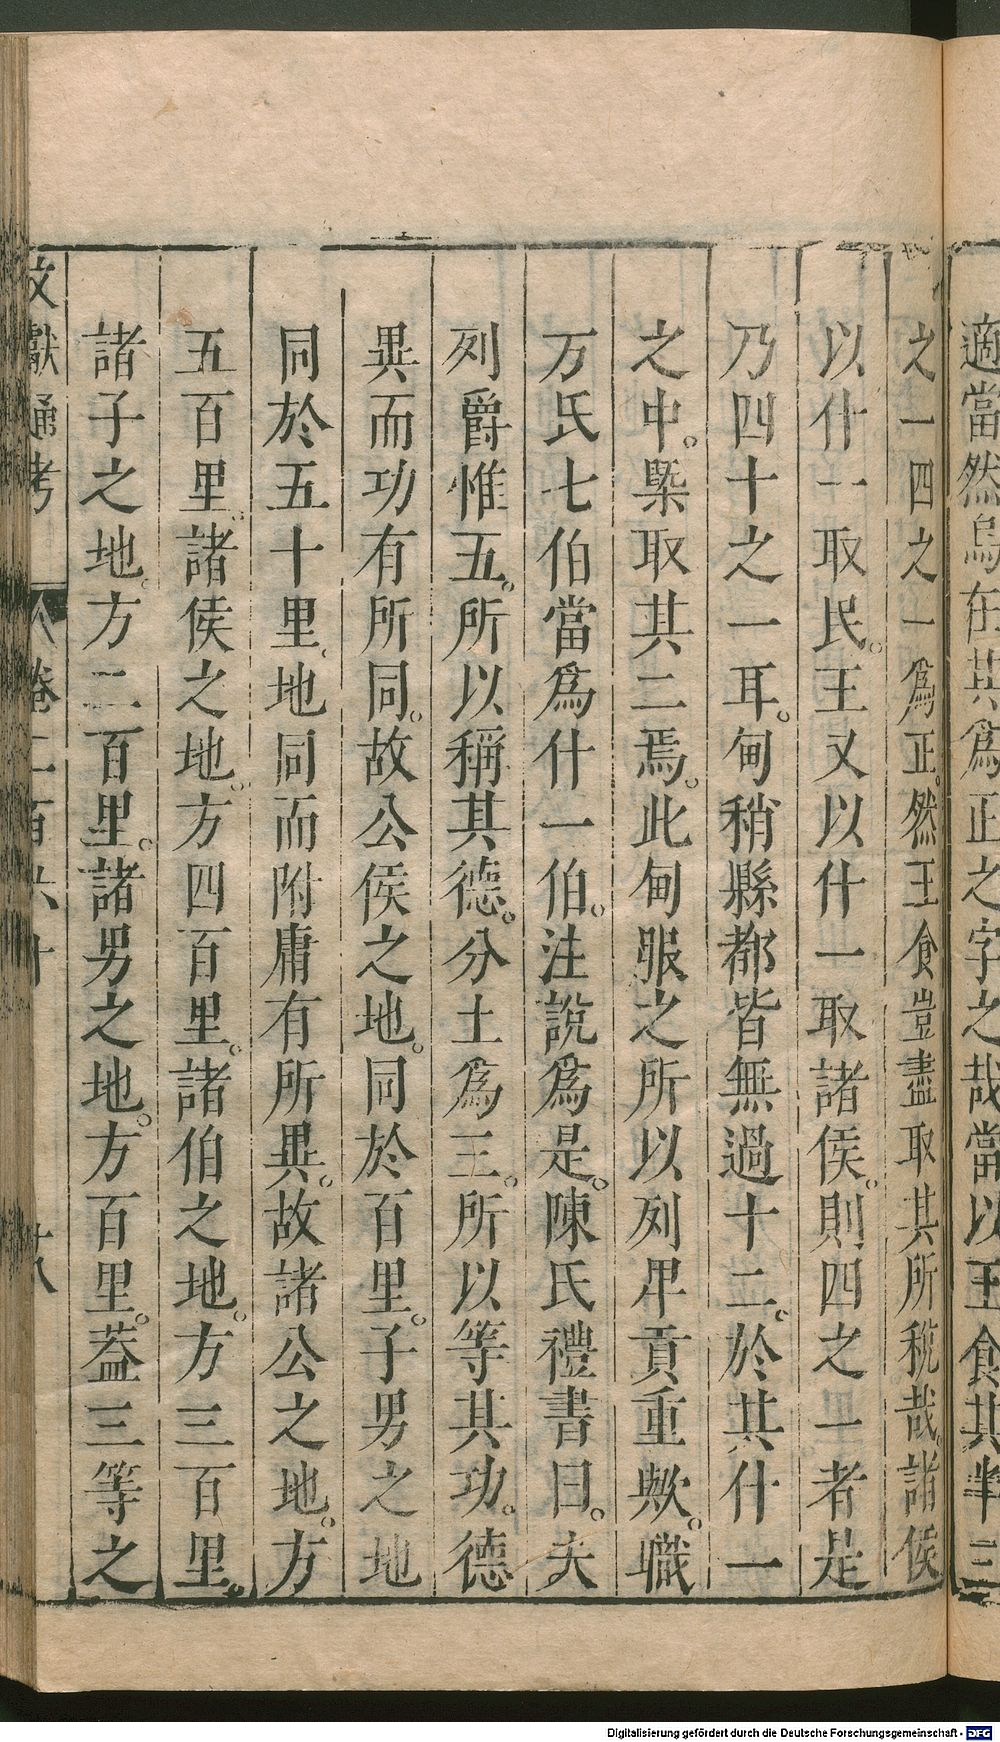 適當然烏在其爲正之字之哉當以王食其半三
之一四之一爲正。然王食豈盡取其所稅哉。諸侯
以什一取民。王又以什一取諸侯。則四之一者是
乃四十之一耳。甸稍縣都皆無過十二。於其什一
之中。槩取其二焉。此甸服之所以列甲貢重歟。職
方氏七伯當爲什一伯。注說爲是。陳氏禮書曰。夫
列爵惟五。所以稱其德。分土爲三。所以等其功。德
異而功有所同。故公侯之地。同於百里。子男之地
同於五十里。地同而附庸有所異。故諸公之地。方
五百里。諸侯之地。方四百里。諸伯之地。方三百里。
諸子之地。方二百里。諸男之地。方百里。葢三等之
文獻通考 卷二百六十 十八
Digitalisierung gefördert durch die Deutsche Forschungsgemeinschaft - DFG